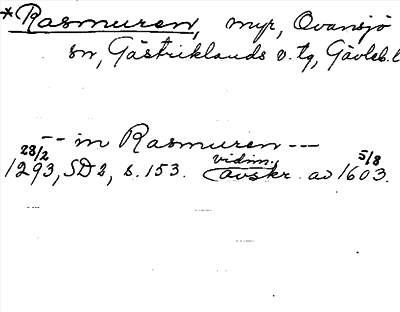 *Rasmuren, myr, Ovansjö
sn, Gästriklands v. tg, Gävleb. l
-- in Rasmuren ---
28/2 1293, SD 2, s. 153. vidim. avskr. av 5/8 1603.